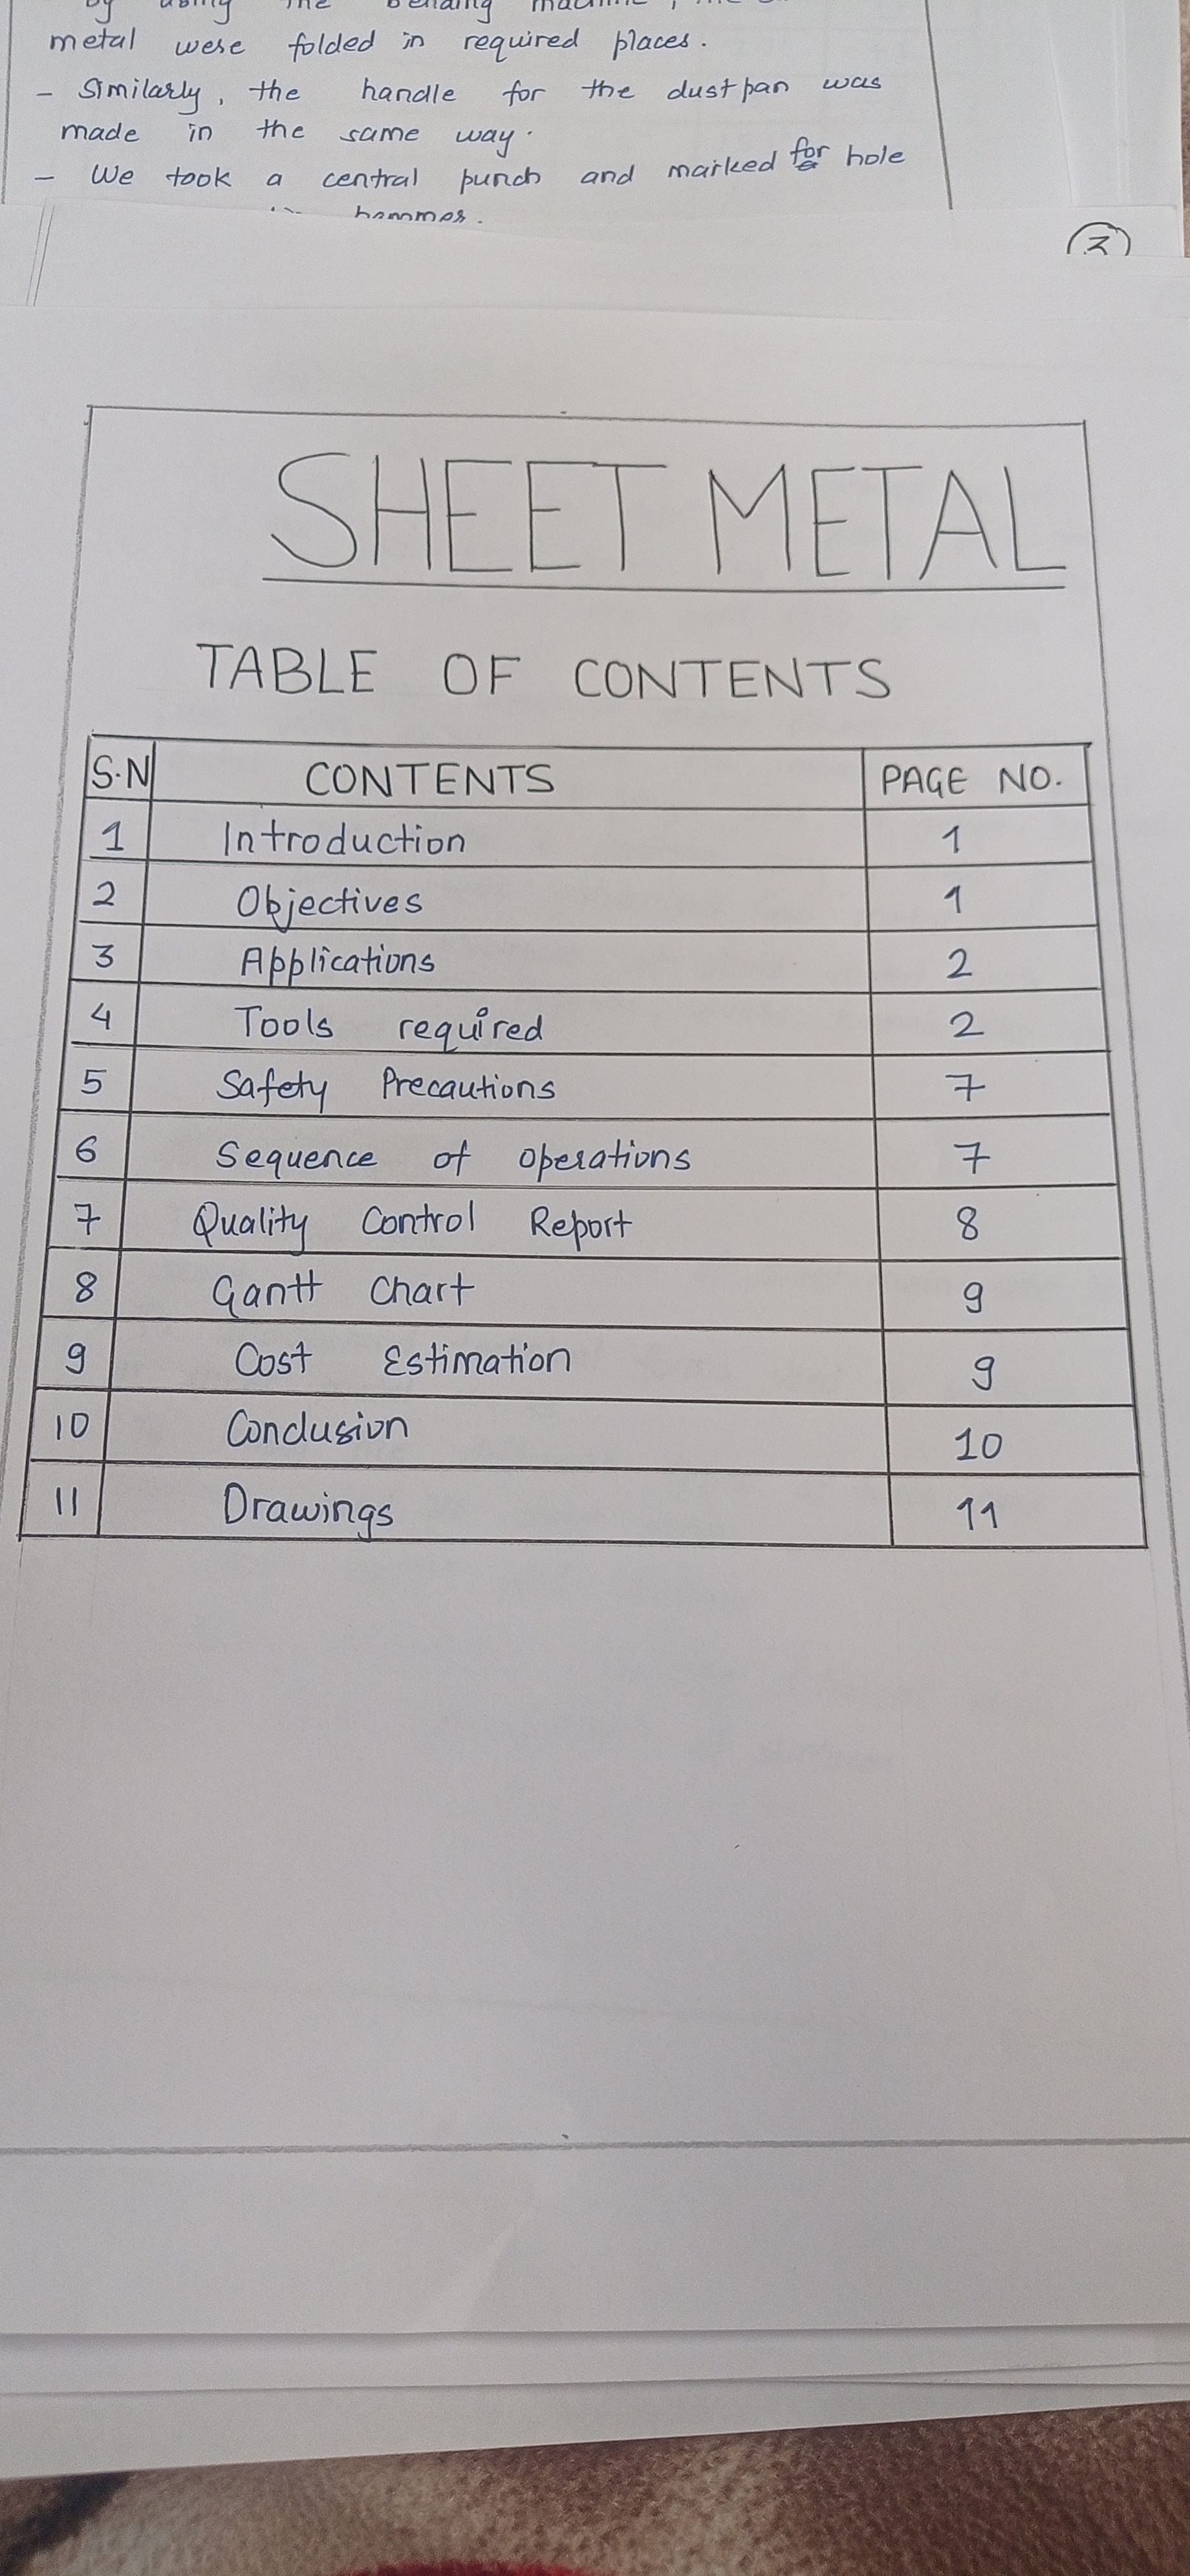 by using the bending machine, the
metal were folded in required places.
- Similarly, the handle for the dustpan was
made in the same way.
- We took a central punch and marked for hole
hammer.
3
SHEET METAL
TABLE OF CONTENTS
S.N CONTENTS PAGE NO.
1 Introduction 1
2 Objectives 1
3 Applications 2
4 Tools required 2
5 Safety Precautions 7
6 Sequence of operations 7
7 Quality Control Report 8
8 Gantt Chart 9
9 Cost Estimation 9
10 Conclusion 10
11 Drawings 11